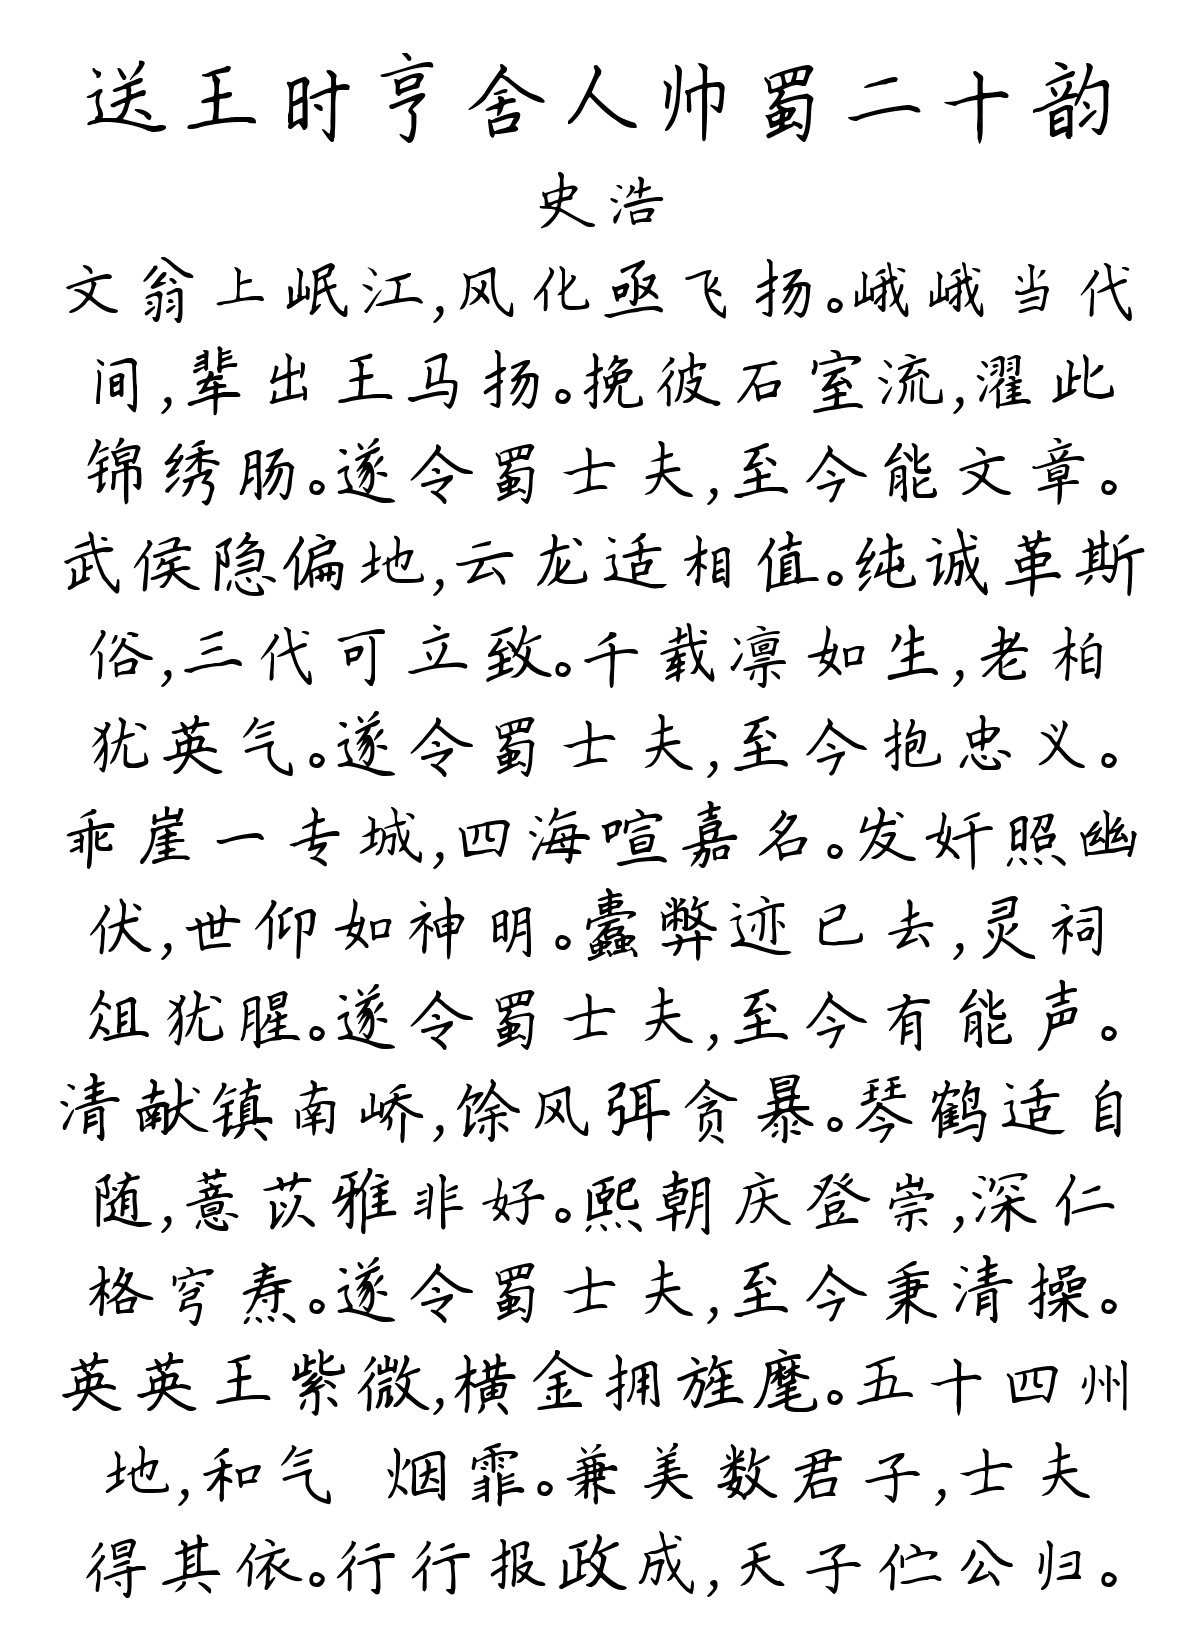 送王时亨舍人帅蜀二十韵
史浩
文翁上岷江,风化亟飞扬。峨峨当代
间,辈出王马扬。挽彼石室流,濯此
锦绣肠。遂令蜀士夫,至今能文章。
武侯隐偏地,云龙适相值。纯诚革斯
俗,三代可立致。千载凛如生,老柏
犹英气。遂令蜀士夫,至今抱忠义。
乖崖一专城,四海喧嘉名。发奸照幽
伏,世仰如神明。蠹弊迹已去,灵祠
俎犹腥。遂令蜀士夫,至今有能声。
清献镇南峤,馀风弭贪暴。琴鹤适自
随,薏苡雅非好。熙朝庆登崇,深仁
格穹焘。遂令蜀士夫,至今秉清操。
英英王紫微,横金拥旌麾。五十四州
地,和气 烟霏。兼美数君子,士夫
得其依。行行报政成,天子伫公归。